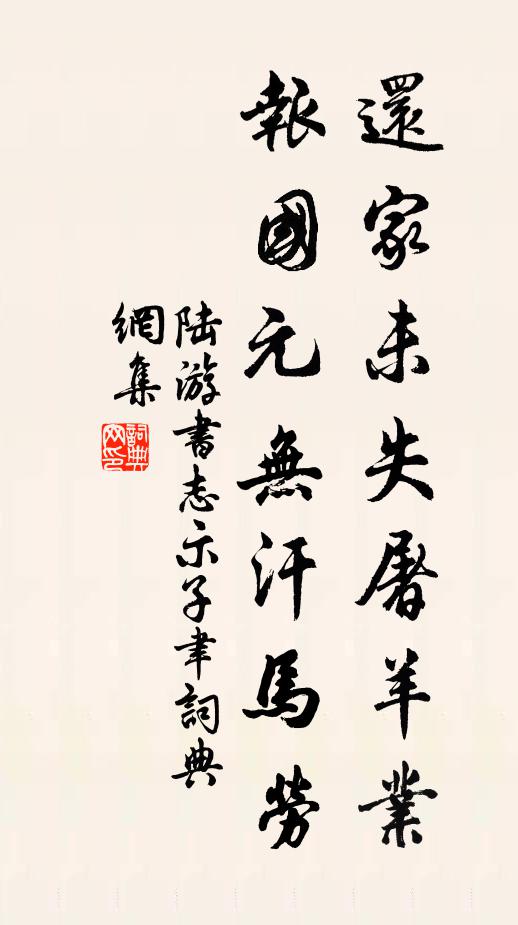 還家未失屠羊業
報國元無汗馬勞
陸游書志示子聿詞典
網集
詞典網印